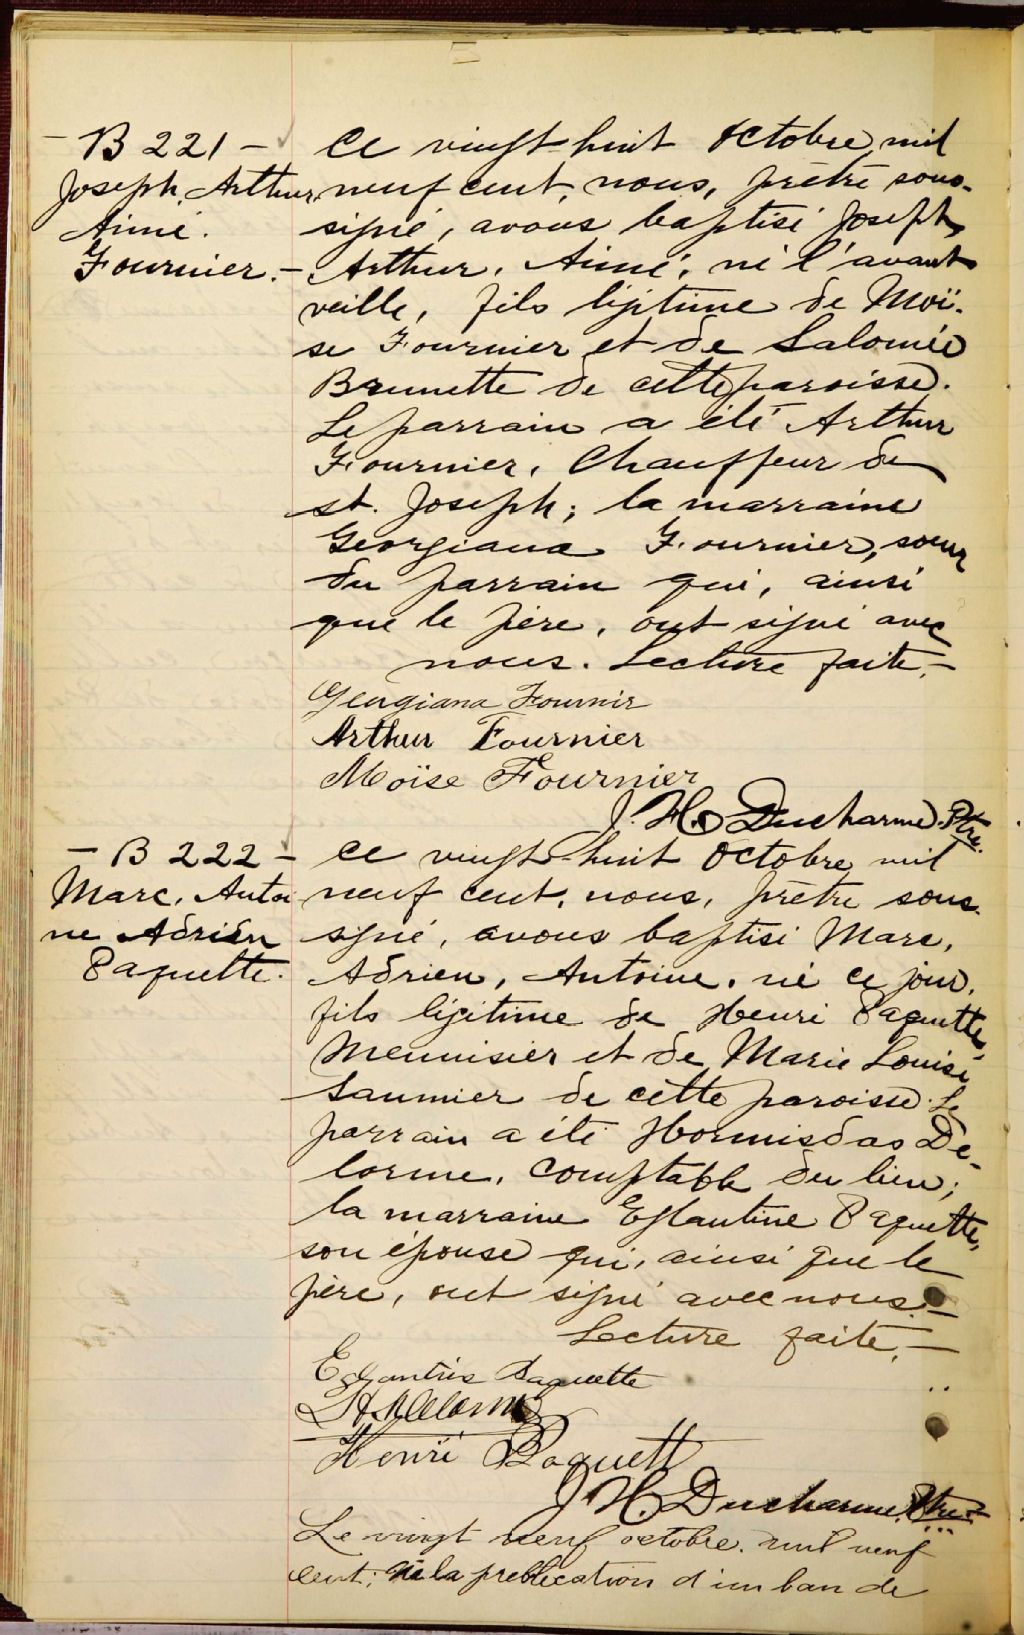 - B 221 -
Joseph, Arthur,
Aimé.
Fournier. -
Ce vingt-huit octobre mil
neuf cent, nous, prêtre sous-
signé, avons baptisé Joseph,
Arthur, Aimé, né l'avant
veille, fils légitime de Moï-
se Fournier et de Salomée
Brunette de cette paroisse.
Le parrain a été Arthur
Fournier, Chauffeur de
St. Joseph; la marraine
Georgiana Fournier, soeur
du parrain qui, ainsi
que le père, ont signé avec
nous. Lecture faite. -
Georgiana Fournir
Arthur Fournier
Moïse Fournier
J. H. Ducharme. Ptre.
- B 222 -
Marc, Antoi
ne Adrien
Paquette.
Ce vingt-huit octobre mil
neuf cent, nous, prêtre sous-
signé, avons baptisé Marc,
Adrien, Antoine, né ce jour,
fils légitime de Henri Paquette,
Menuisier et de Marie Louise
Saumier de cette paroisse. Le
parrain a été Hormisdas De-
lorme, comptable du lieu;
la marraine Eglantine Paquette,
son épouse qui, ainsi que le
père, ont signé avec nous. -
Lecture faite. -
Paquette
Henri Paquett
J. H. Ducharme, Ptre.
Le vingt neuf octobre mil neuf
cent; la publication d'un ban de